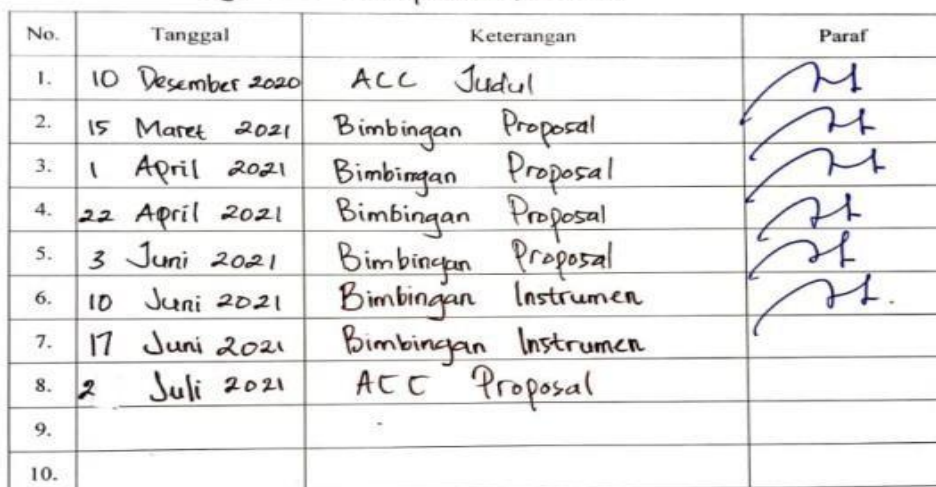 No. Tanggal Keterangan Paraf
1. 10 Desember 2020 ACC Judul
2. 15 Maret 2021 Bimbingan Proposal
3. 1 April 2021 Bimbingan Proposal
4. 22 April 2021 Bimbingan Proposal
5. 3 Juni 2021 Bimbingan Proposal
6. 10 Juni 2021 Bimbingan Instrumen
7. 17 Juni 2021 Bimbingan Instrumen
8. 2 Juli 2021 ACC Proposal
9.
10.